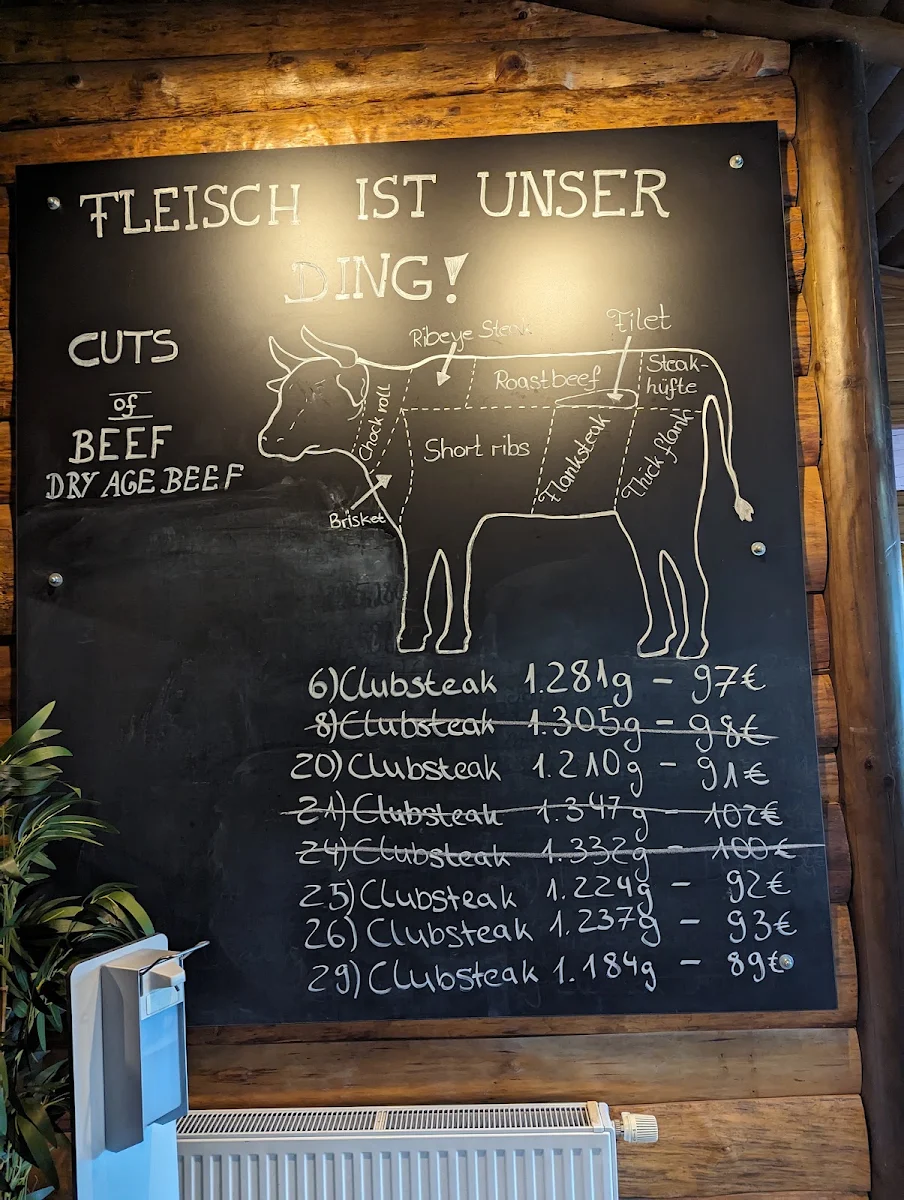 FLEISCH IST UNSER
DING!
CUTS
of
BEEF
DRY AGE BEEF
Ribeye Steak
Filet
Chock roll
Roastbeef
Steak-
hüfte
Short ribs
Flanksteak
Thick flank
Brisket
6) Clubsteak 1.281g - 97€
8) Clubsteak 1.305g - 98€
20) Clubsteak 1.210g - 91€
21) Clubsteak 1.347g - 102€
24) Clubsteak 1.332g - 100€
25) Clubsteak 1.224g - 92€
26) Clubsteak 1.237g - 93€
29) Clubsteak 1.184g - 89€